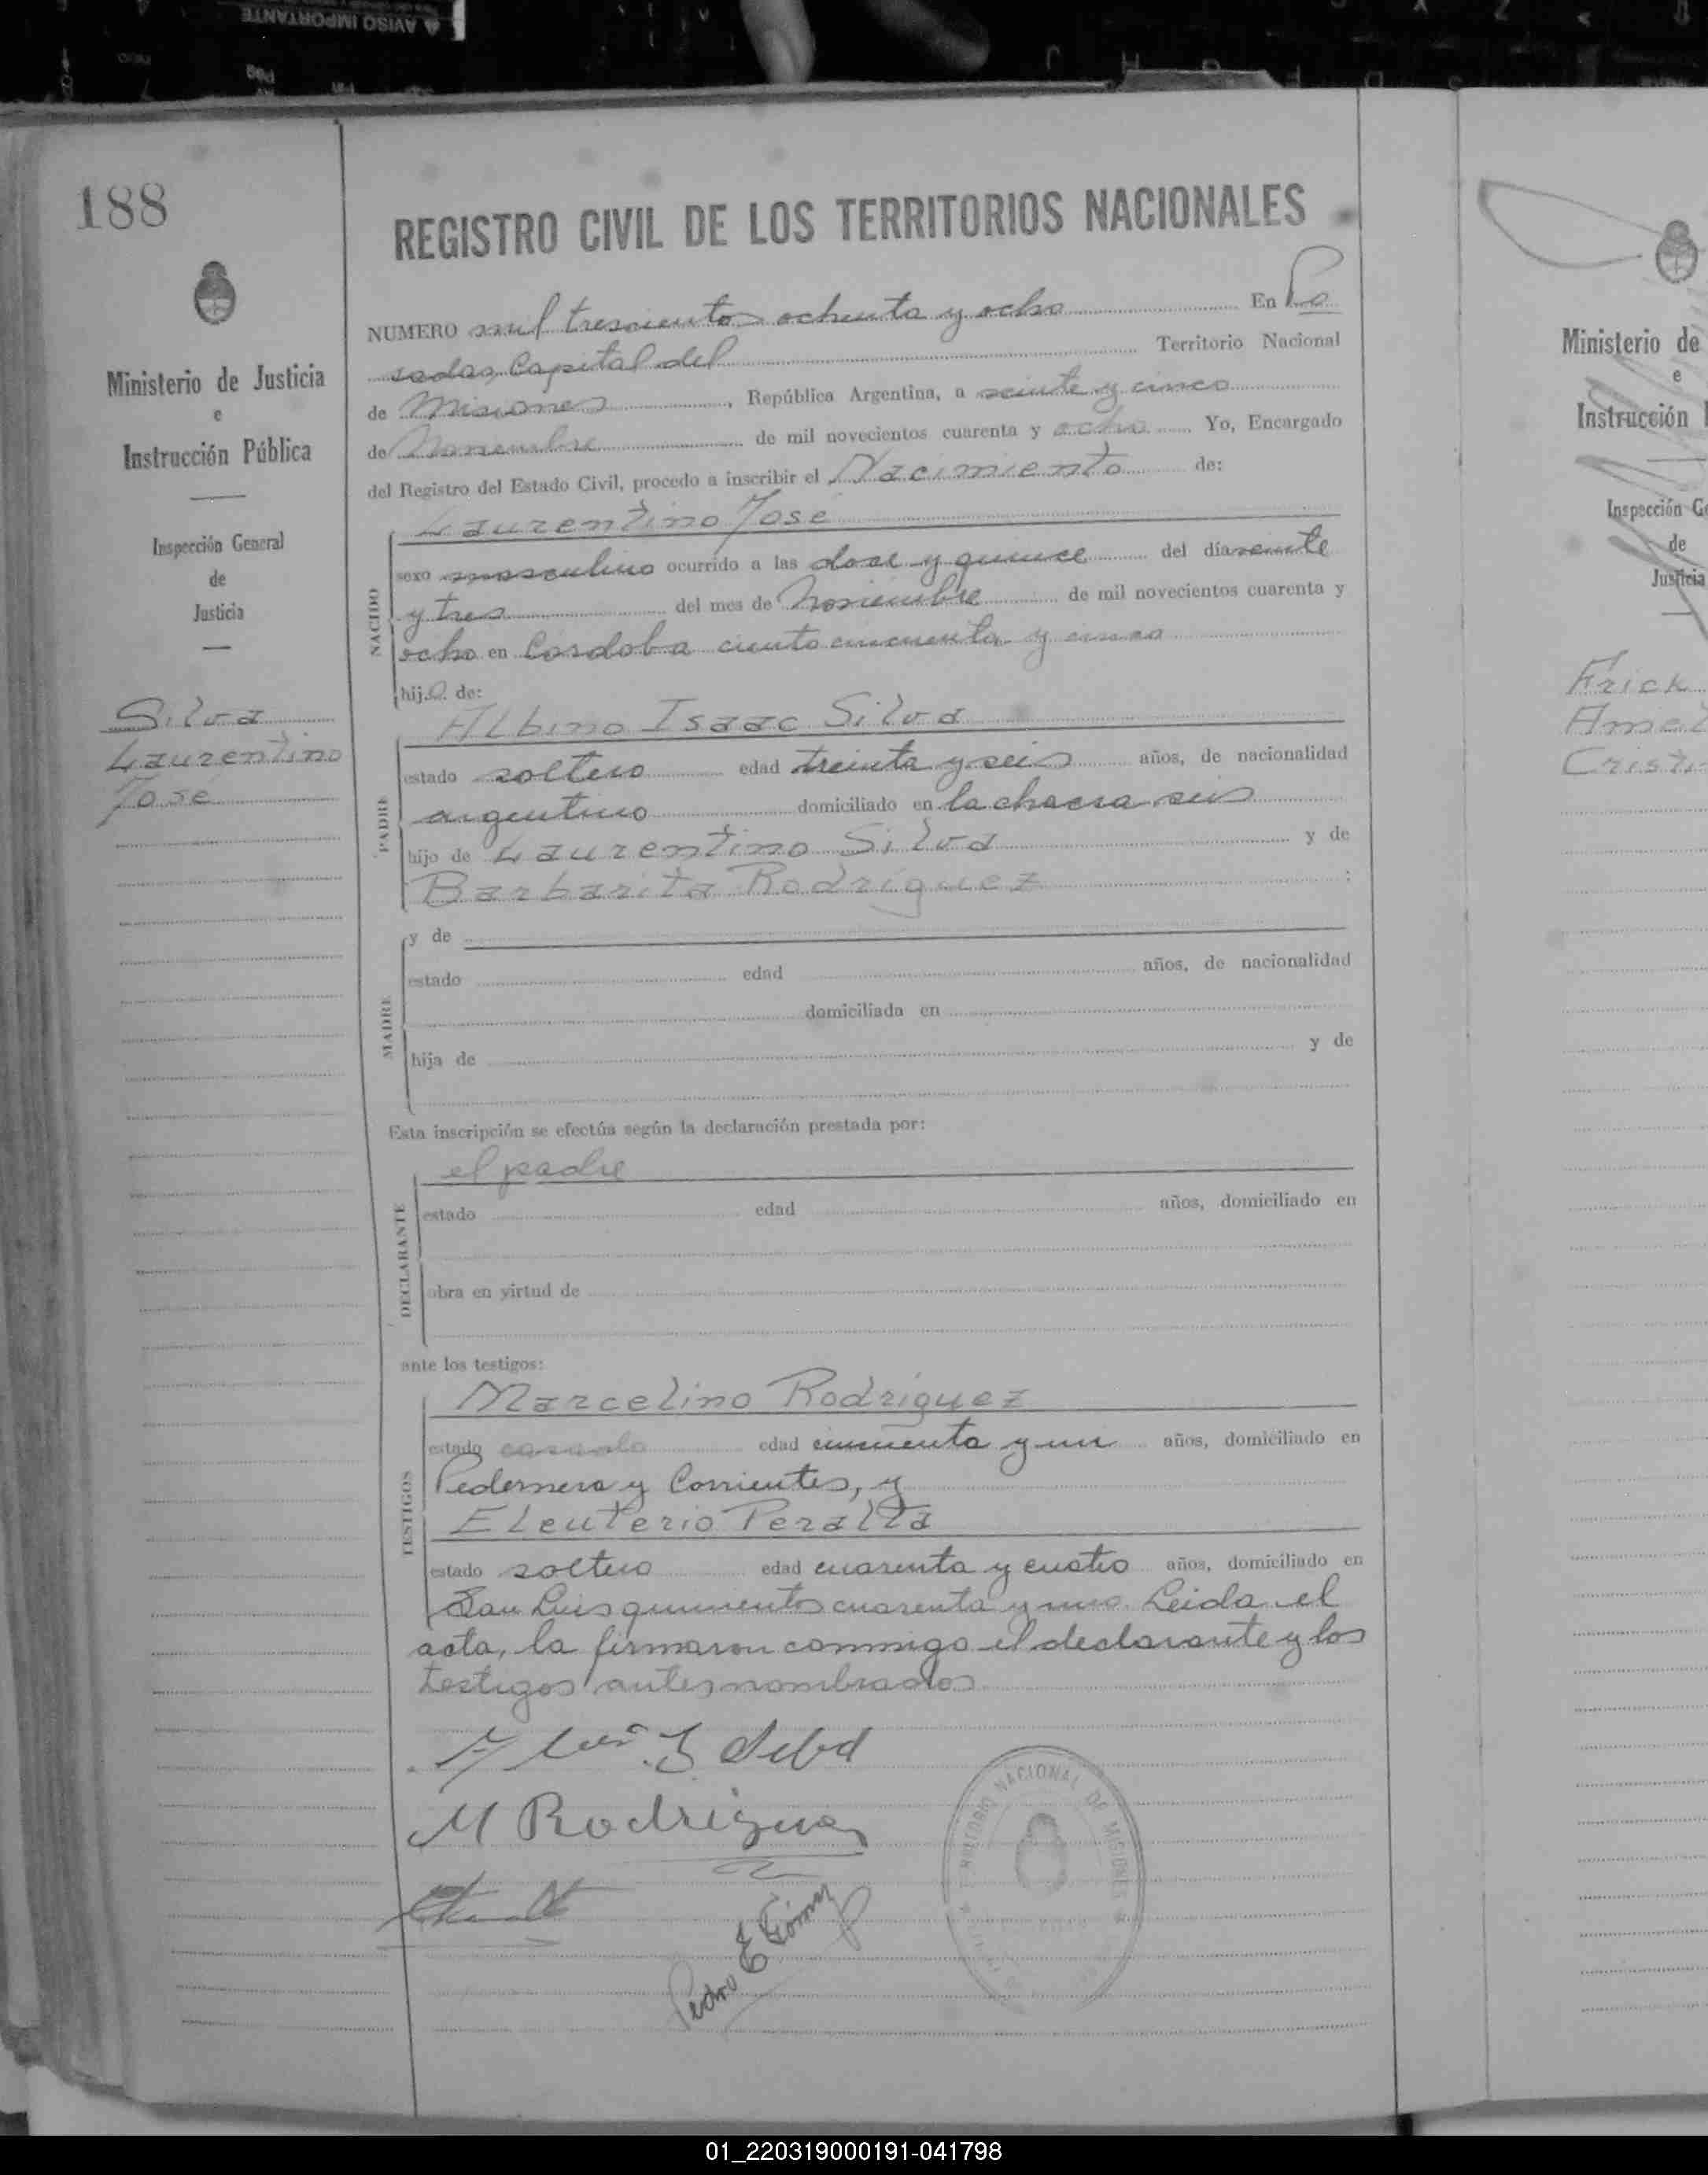 AVISO IMPORTANTE
188
REGISTRO CIVIL DE LOS TERRITORIOS NACIONALES
NUMERO mil trescientos ochenta y ocho En Po
sadas, Capital del Territorio Nacional
de Misiones, República Argentina, a veinte y cinco
de Noviembre de mil novecientos cuarenta y ocho Yo, Encargado
del Registro del Estado Civil, procedo a inscribir el Nacimiento de:
Laurentino José
sexo masculino ocurrido a las doce y quince del día veinte
y tres del mes de Noviembre de mil novecientos cuarenta y
ocho en Cordoba ciento cincuenta y cinco
hijo de:
NACIDO
Albino Isaac Silva
estado soltero edad treinta y seis años, de nacionalidad
argentino domiciliado en la chacra seis
hijo de Laurentino Silva y de
Barbarita Rodríguez ;
PADRE
y de
estado edad años, de nacionalidad
domiciliada en
hija de y de
MADRE
Esta inscripción se efectúa según la declaración prestada por:
el padre
estado edad años, domiciliado en
obra en virtud de
DECLARANTE
ante los testigos:
Marcelino Rodríguez
estado casado edad cincuenta y un años, domiciliado en
Pedernera y Corrientes, y
Eleuterio Peralta
estado soltero edad cuarenta y cuatro años, domiciliado en
San Luis quinientos cuarenta y uno. Leida el
TESTIGOS
acta, la firmaron conmigo el declarante y los
testigos antes nombrados
Silva
M Rodriguez
Pedro E Gómez
TERRITORIO NACIONAL DE MISIONES
Ministerio de Justicia
e
Instrucción Pública
Inspección General
de
Justicia
Silva
Laurentino
José
Ministerio de
e
Instrucción
Inspección Ge
de
Justicia
Erick
Amet
Cristi
01_220319000191-041798